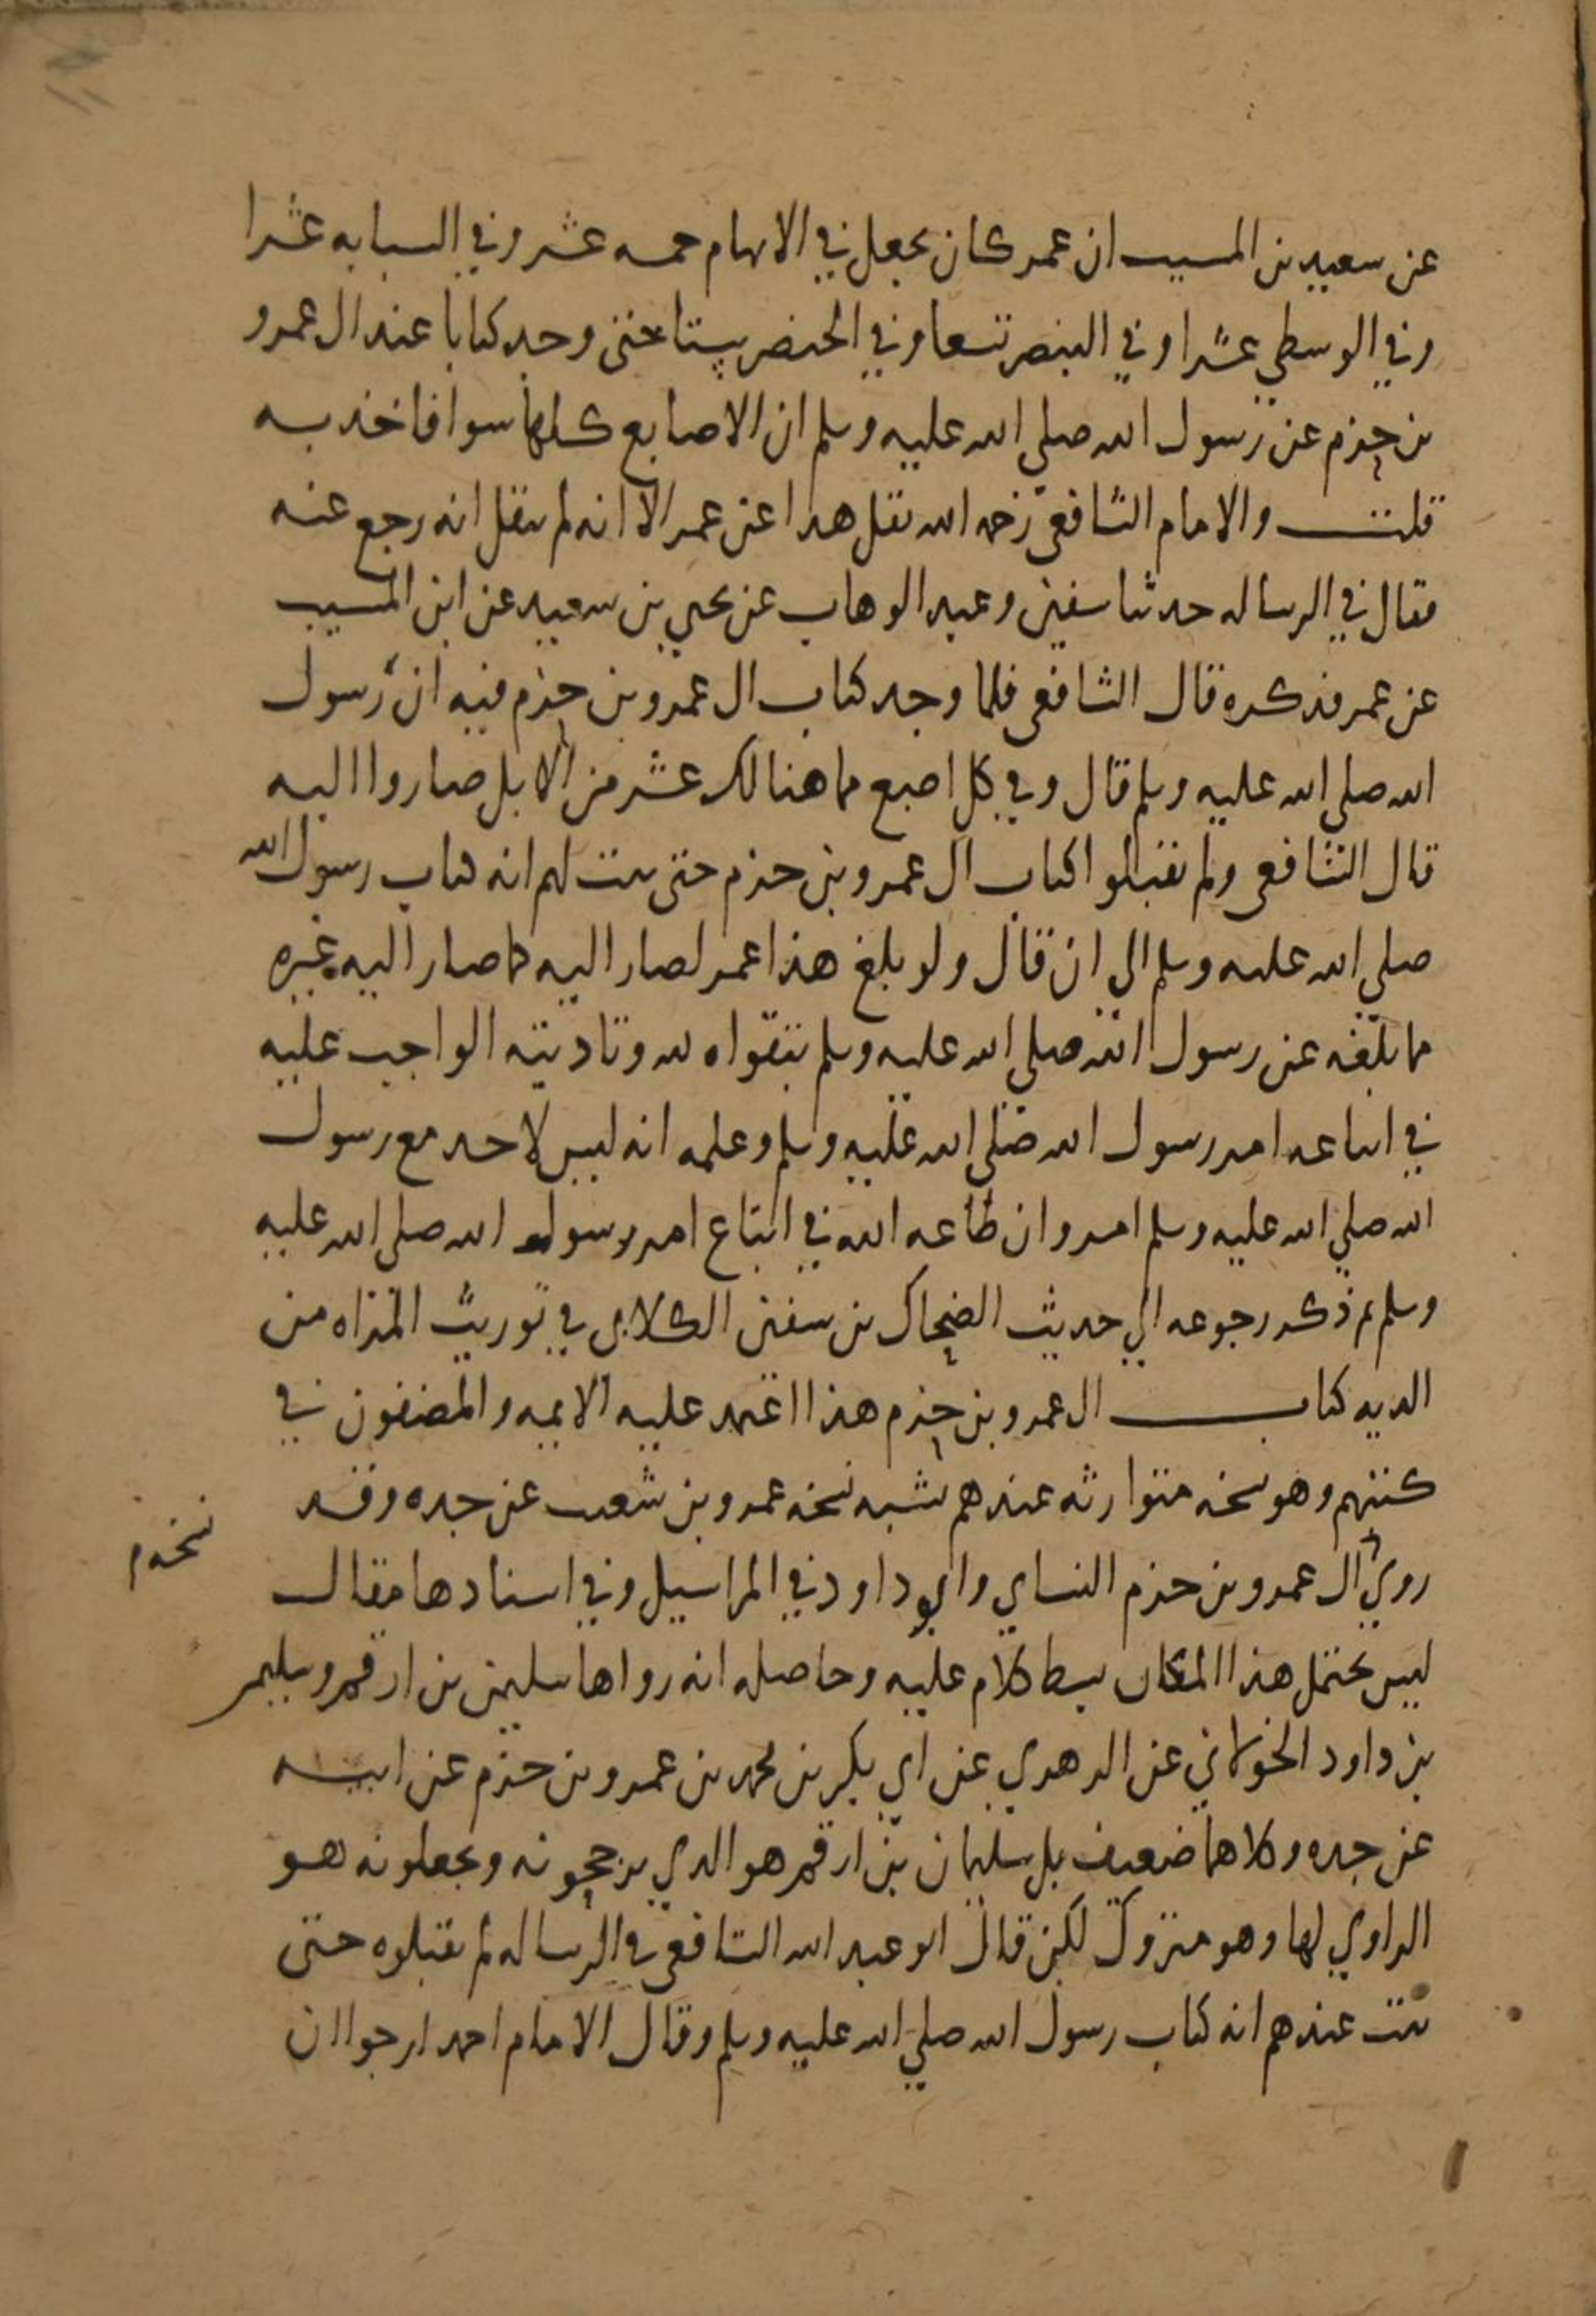 عن سعيد بن المسيب ان عمر كان يجعل في الابهام خمسه عشر وفي السبابه عشرا
وفي الوسطي عشرا وفي البنصر تسعا وفي الخنصر ستا حتى وجد كتابا عند ال عمرو
بن حزم عن رسول الله صلي الله عليه وسلم ان الاصابع كلها سوا فاخذ به
قلت والامام الشافعي رحمه الله نقل هذا عن عمر الا انه لم ينقل انه رجع عنه
فقال في الرساله حدثنا سفين وعبد الوهاب عن يحيي بن سعيد عن ابن المسيب
عن عمر فذكره قال الشافعي فلما وجد كتاب ال عمرو بن حزم فيه ان رسول
الله صلي الله عليه وسلم قال وفي كل اصبع مما هنالك عشر من الابل صاروا اليه
قال الشافعي ولم يقبلوا كتاب ال عمرو بن حزم حتى ثبت لهم انه كتاب رسول الله
صلي الله عليه وسلم الى ان قال ولو بلغ هذا عمر لصار اليه كما صار اليه غيره
مما بلغه عن رسول الله صلي الله عليه وسلم بتقواه لله وتاديته الواجب عليه
في اتباعه امر رسول الله صلي الله عليه وسلم وعلمه انه ليس لاحد مع رسول
الله صلي الله عليه وسلم امر وان طاعه الله في اتباع امر رسول الله صلي الله عليه
وسلم ثم ذكر رجوعه الي حديث الضحاك بن سفين الكلابي في توريث المراه من
الديه كتاب ال عمرو بن حزم هذا اعتمد عليه الايمه والمصنفون في
كتبهم وهو نسخه متوارثه عندهم تشبه نسخه عمرو بن شعيب عن جده وقد
نسخه م
روي ال عمرو بن حزم النساي وابو داود في المراسيل وفي اسنادها مقال
ليس يحتمل هذا المكان بسط كلام عليه وحاصله انه رواها سليمن بن ارقم وسليمن
بن داود الخولاني عن الزهري عن ابي بكر بن محمد بن عمرو بن حزم عن ابيه
عن جده وكلاهما ضعيف بل سليمان بن ارقم هو الذي يرجحونه ويجعلونه هو
الراوي لها وهو متروك لكن قال ابو عبد الله الشافعي في الرساله لم يقبلوه حتى
ثبت عندهم انه كتاب رسول الله صلي الله عليه وسلم وقال الامام احمد ارجوا ان